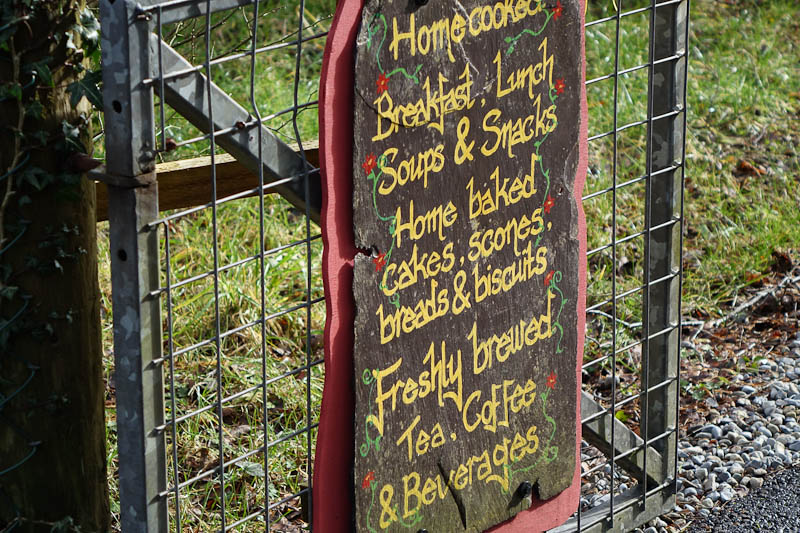 Home cooked
Breakfast, Lunch
Soups & Snacks
Home baked
cakes, scones,
breads & biscuits
Freshly brewed
Tea, Coffee
& Beverages